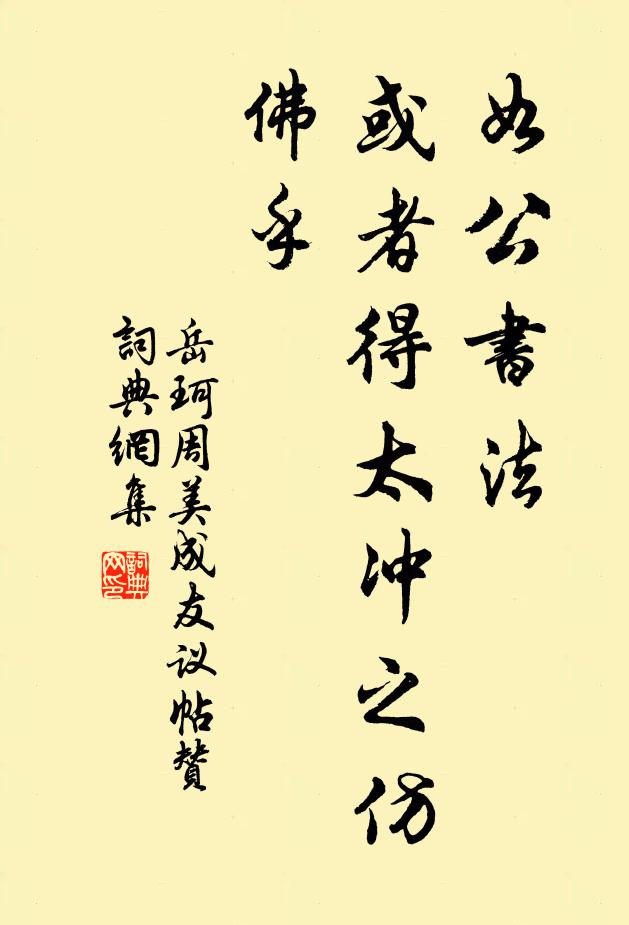 如公書法
或者得太冲之仿
佛乎
岳珂周美成友议帖賛
詞典網集
詞典
网印